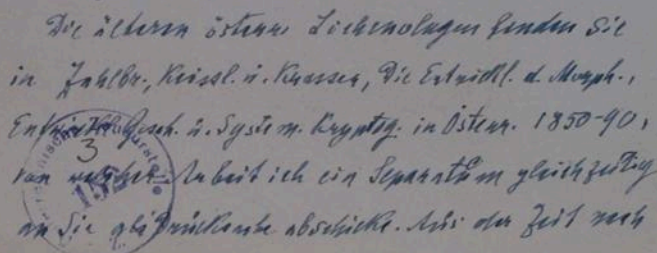 Die älteren österr. Lichenologen finden Sie
in Zahlbr., Keissl. u. Krasser, Die Entwickl. d. Morph.,
Entwickl.Gesch. u. System. Kryptog. in Österr. 1850-90,
von welcher Arbeit ich ein Separatum gleichzeitig
an Sie als Drucksache abschicke. Aus der Zeit nach
3
155